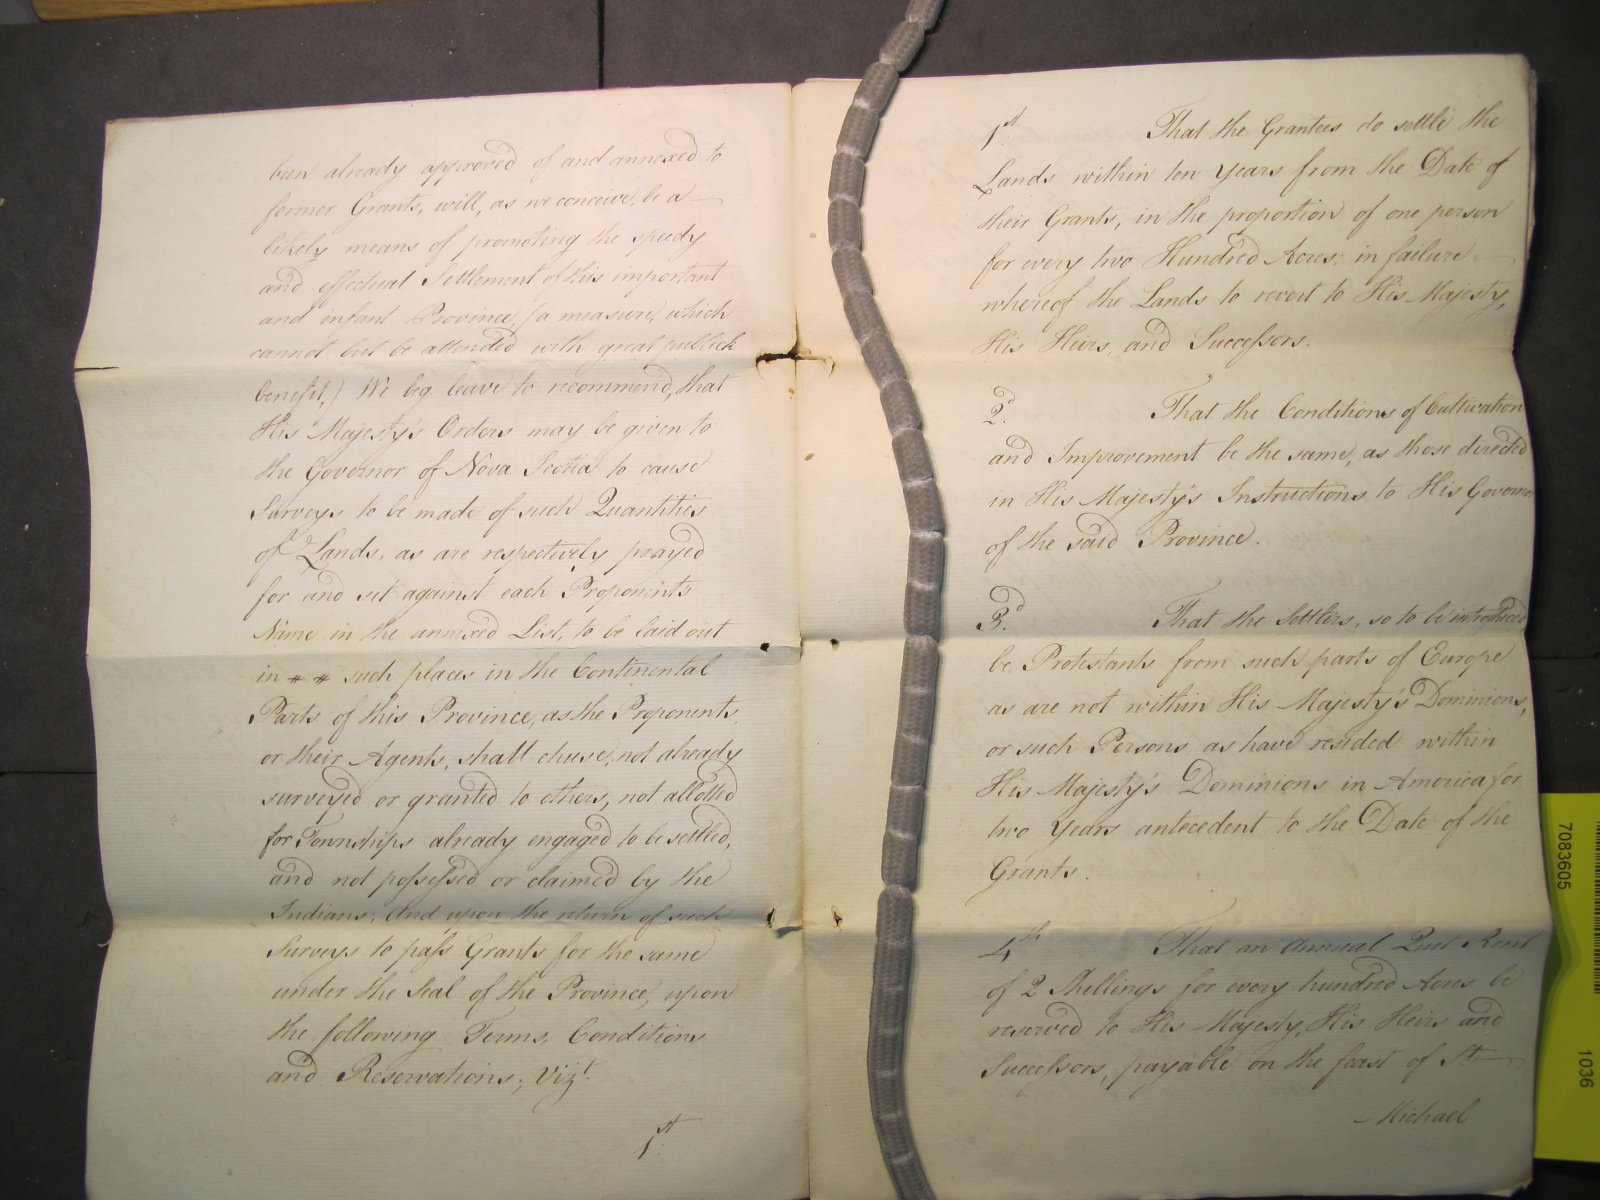 han already approved of and annexed to
former Grants, will, as we conceive, be a
likely means of promoting the speedy
and effectual Settlement of this important
and infant Province, (a measure, which
cannot but be attended with great publick
benefit,) We beg leave to recommend, that
His Majesty's Orders may be given to
the Governor of Nova Scotia to cause
Surveys to be made of such Quantities
of Lands, as are respectively prayed
for and set against each Proponents
Name in the annexed List, to be laid out
in # # such places in the Continental
Parts of this Province, as the Proponents,
or their Agents, shall chuse, not already
surveyed or granted to others, not allotted
for Townships already engaged to be settled,
and not possessed or claimed by the
Indians; And upon the return of such
Surveys to pass Grants for the same
under the Seal of the Province, upon
the following Terms, Conditions
and Reservations; Vizt.
1st.
1st. That the Grantees do settle the
Lands within ten Years from the Date of
their Grants, in the proportion of one person
for every two Hundred Acres; in failure
whereof the Lands to revert to His Majesty,
His Heirs, and Successors.
2d. That the Conditions of Cultivation
and Improvement be the same, as those directed
in His Majesty's Instructions to His Governor
of the said Province.
3d. That the Settlers, so to be introduced
be Protestants from such parts of Europe
as are not within His Majesty's Dominions,
or such Persons as have resided within
His Majesty's Dominions in America for
two Years antecedent to the Date of the
Grants.
4th That an Annual Quit Rent
of 2 Shillings for every hundred Acres be
reserved to His Majesty, His Heirs and
Successors, payable on the feast of St.
Michael
7083605
1036